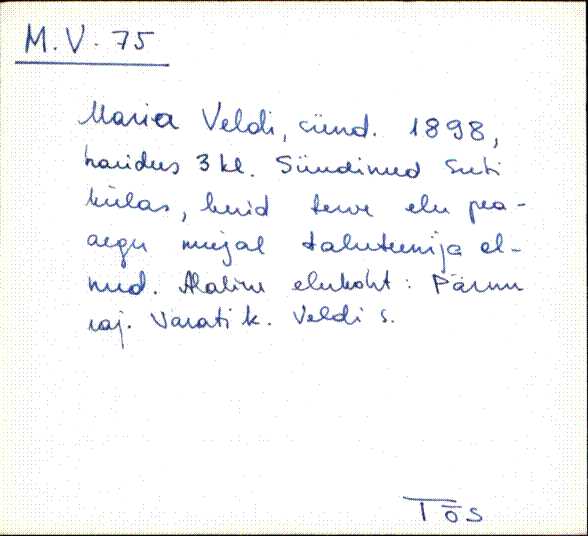 M.V. 75
Maria Veldi, sünd. 1898,
haridus 3 kl. Sündinud Suti
külas, kuid terve elu pea-
aegu mujal taluteenija el-
nud. Alaline elukoht: Pärnu
raj. Varati k. Veldi s.
Tõs